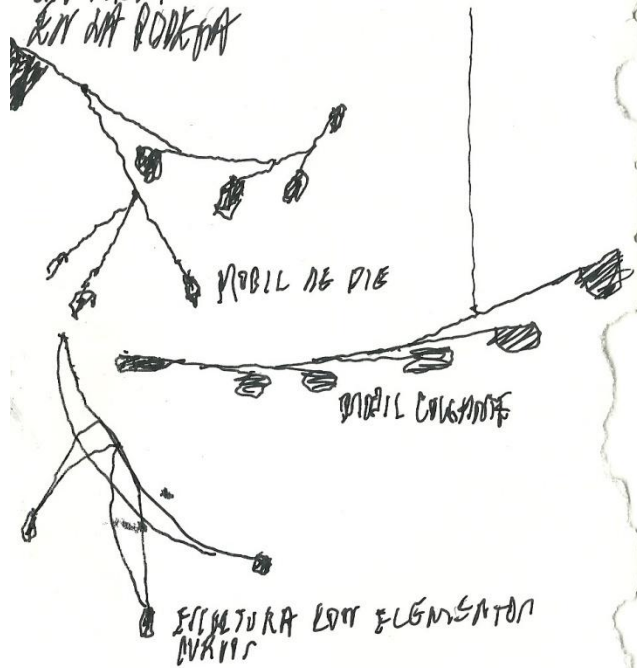 EN LA BODEGA
MOBIL DE PIE
MOBIL COLGANTE
ESCULTURA CON ELEMENTOS